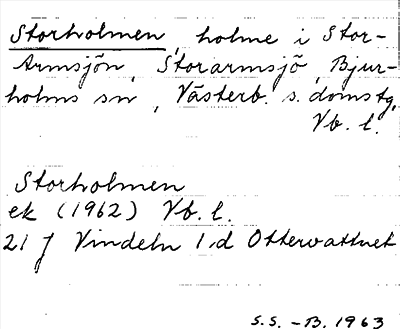 Storholmen, holme i Stor-
Armsjön, Storarmsjö, Bjur-
holms sn, Västerb. s. domstg,
Vb. l.
Storholmen
ek (1962) Vb. l.
21 J Vindeln 1 d Ottervattnet
S.S. -B. 1963